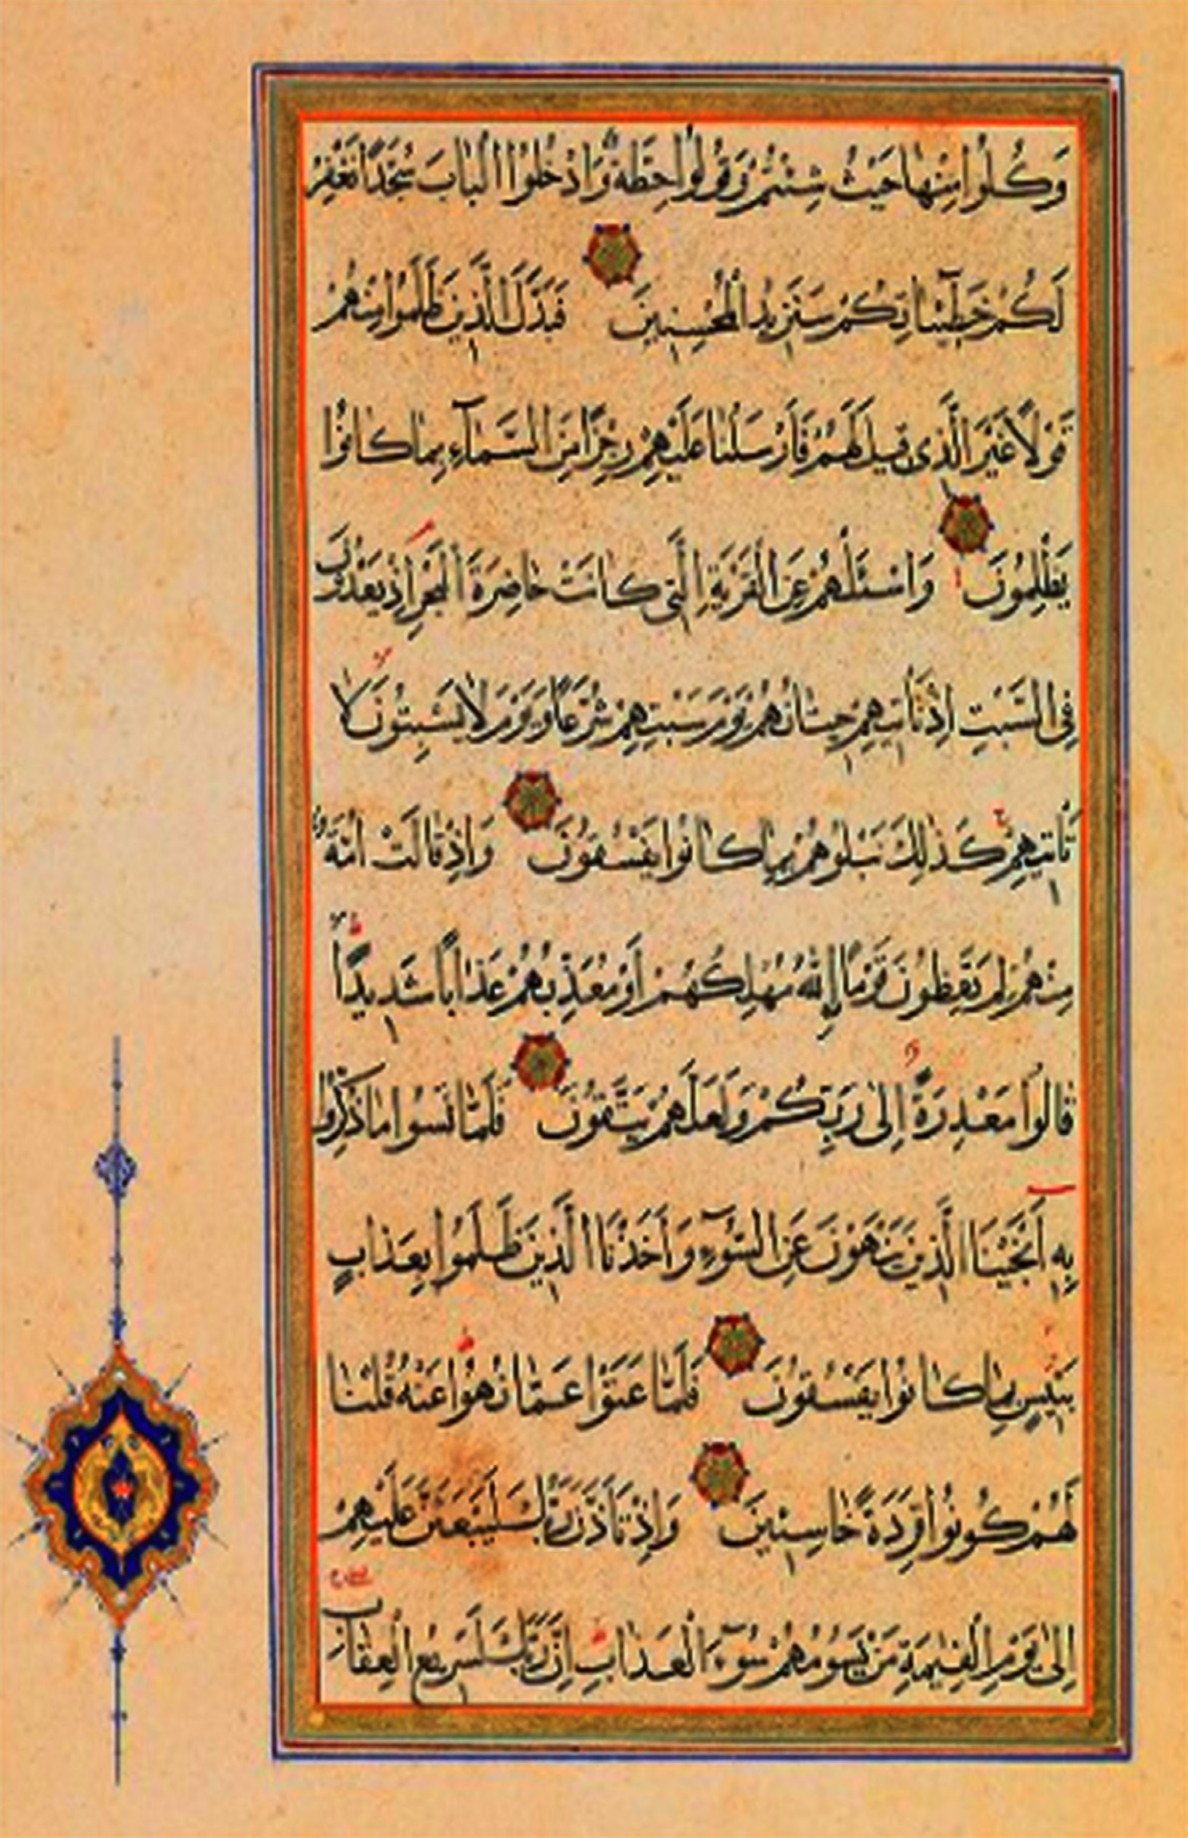 وَكُلُوا مِنْهَا حَيْثُ شِئْتُمْ وَقُولُوا حِطَّةٌ وَادْخُلُوا الْبَابَ سُجَّدًا نَغْفِرْ
لَكُمْ خَطِيئَاتِكُمْ سَنَزِيدُ الْمُحْسِنِينَ فَبَدَّلَ الَّذِينَ ظَلَمُوا مِنْهُمْ
قَوْلًا غَيْرَ الَّذِي قِيلَ لَهُمْ فَأَرْسَلْنَا عَلَيْهِمْ رِجْزًا مِنَ السَّمَاءِ بِمَا كَانُوا
يَظْلِمُونَ وَاسْئَلْهُمْ عَنِ الْقَرْيَةِ الَّتِي كَانَتْ حَاضِرَةَ الْبَحْرِ إِذْ يَعْدُونَ
فِي السَّبْتِ إِذْ تَأْتِيهِمْ حِيتَانُهُمْ يَوْمَ سَبْتِهِمْ شُرَّعًا وَيَوْمَ لَا يَسْبِتُونَ لَا
تَأْتِيهِمْ كَذٰلِكَ نَبْلُوهُمْ بِمَا كَانُوا يَفْسُقُونَ وَإِذْ قَالَتْ أُمَّةٌ
مِنْهُمْ لِمَ تَعِظُونَ قَوْمًا اللهُ مُهْلِكُهُمْ أَوْ مُعَذِّبُهُمْ عَذَابًا شَدِيدًا
قَالُوا مَعْذِرَةً إِلَىٰ رَبِّكُمْ وَلَعَلَّهُمْ يَتَّقُونَ فَلَمَّا نَسُوا مَا ذُكِّرُوا
بِهِ أَنْجَيْنَا الَّذِينَ يَنْهَوْنَ عَنِ السُّوءِ وَأَخَذْنَا الَّذِينَ ظَلَمُوا بِعَذَابٍ
بَئِيسٍ بِمَا كَانُوا يَفْسُقُونَ فَلَمَّا عَتَوْا عَمَّا نُهُوا عَنْهُ قُلْنَا
لَهُمْ كُونُوا قِرَدَةً خَاسِئِينَ وَإِذْ تَأَذَّنَ رَبُّكَ لَيَبْعَثَنَّ عَلَيْهِمْ
إِلَىٰ يَوْمِ الْقِيٰمَةِ مَنْ يَسُومُهُمْ سُوءَ الْعَذَابِ إِنَّ رَبَّكَ لَسَرِيعُ الْعِقَابِ